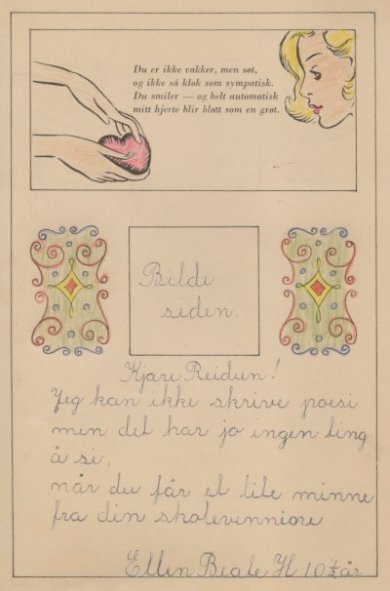 Du er ikke vakker, men søt,
og ikke så klok som sympatisk.
Du smiler — og helt automatisk
mitt hjerte blir bløtt som en grøt.
Bilde
siden.
Kjære Reidun!
Jeg kan ikke skrive poesi
men det har jo ingen ting
å si,
når du får et lite minne
fra din skolevenninne
Ellen Beate H 10½ år